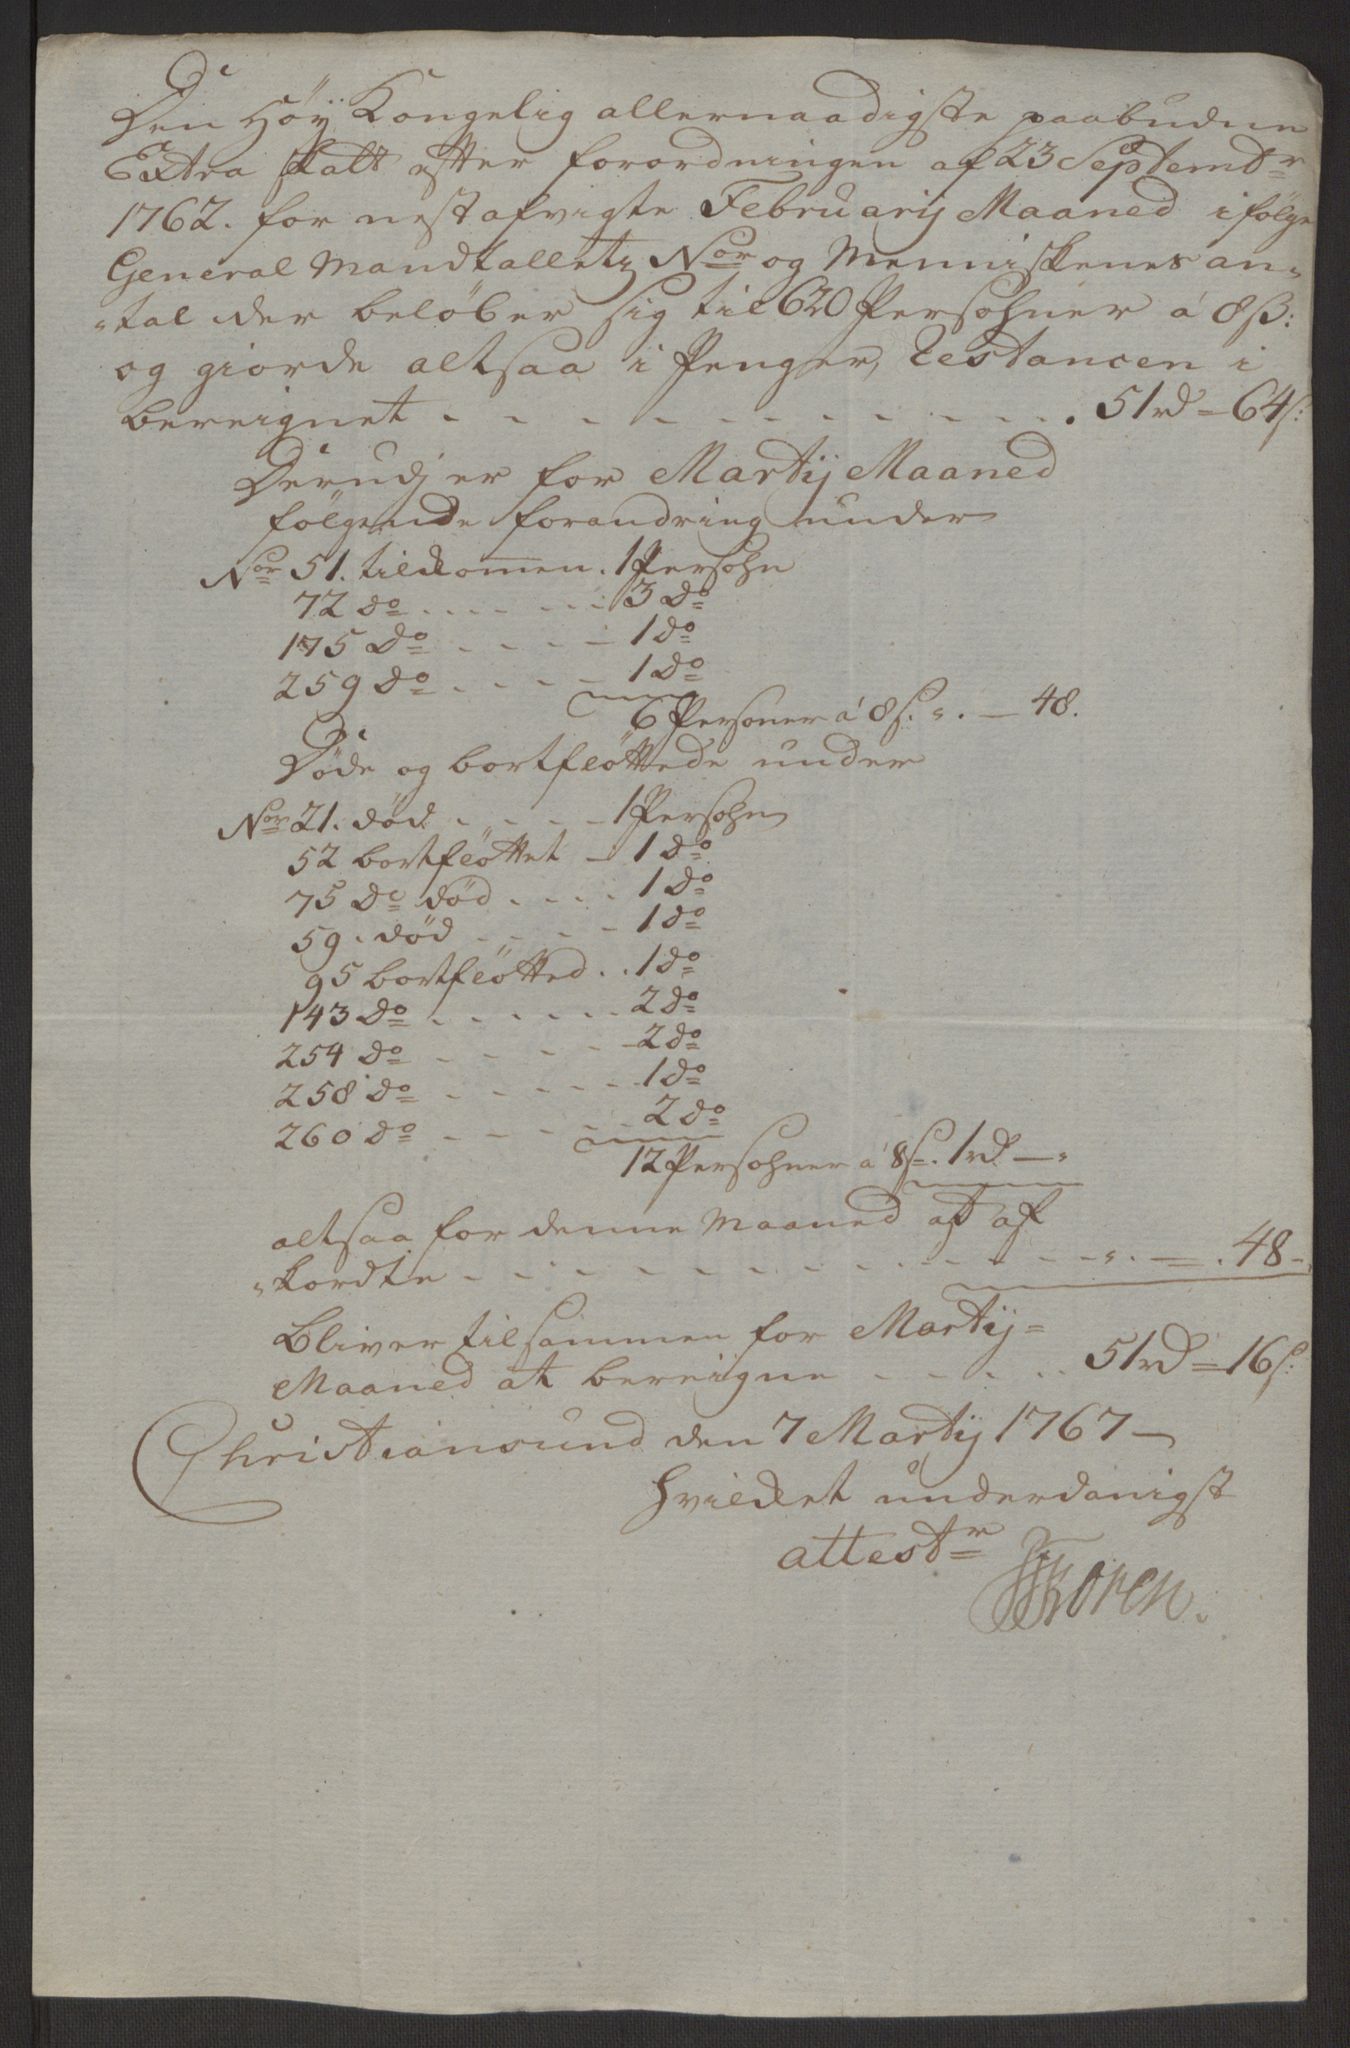 Den Höÿ Kongelig allernaadigste paabudne
Extra Skatt efter forordningen af 23 Septembr
1762. for nest afvigte Februarij Maaned ifölge
General Mandtallets Nor og Menniskenes an„
„tal der belöber sig til 620 Persohner á 8ß:
og giorde altsaa i Penger, i
bereignet - - - - - - - - - . 51rd = 64ß:
Derudj er for Martij Maaned
fölgende forandring under
Nor 51. tilkommen. 1 Persohn
72 do - - - - - 3 do
175 do - - - - 1 do
259 do - - - - 1 do
6 Personer á 8ß. „. — 48.
Döde og bortfløttede under
Nor 21. död - - - - 1 Persohn
52 bortfløttet - 1 do
75 do död - - - - 1 do
59. död - - - - 1 do
95 bortfløtted . . 1 do
143 do - - - - - - 2 do
254 do - - - - - 2 do
258 do - - - - - - 1 do
260 do - - - - - 2 do
12 Persohner á 8ß. 1rd — „
altsaa for denne Maaned at af
„kordte - - - - - - - - - - „. — . 48 -
Bliver tilsammen for Martij=
Maaned at bereigne - - - - - . 51rd = 16ß:
Christiansund den 7 Martij 1767 —
hvilket underdanigst
attestr
JKoren.